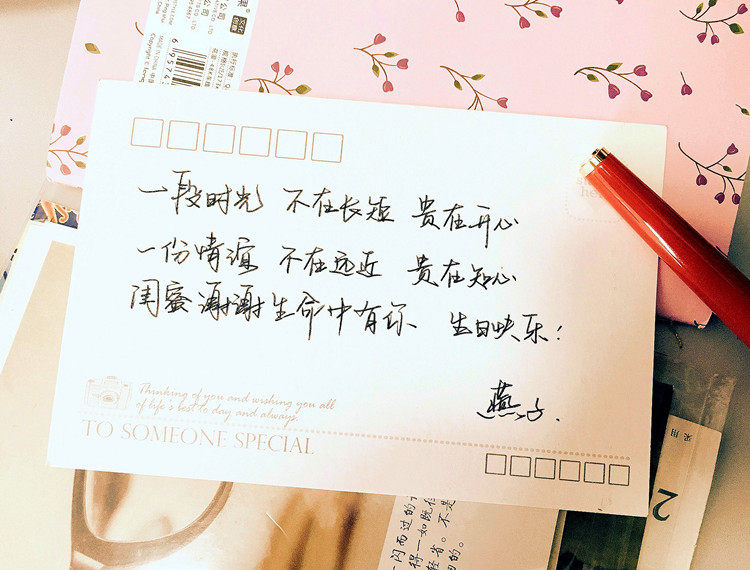 一段时光 不在长短 贵在开心
一份情谊 不在远近 贵在知心
闺蜜谢谢生命中有你 生日快乐!
燕子.
Thinking of you and wishing you all
of life's best to day and always.
TO SOMEONE SPECIAL
2
采用
一闪而过的
得一如既往
轻省。不是